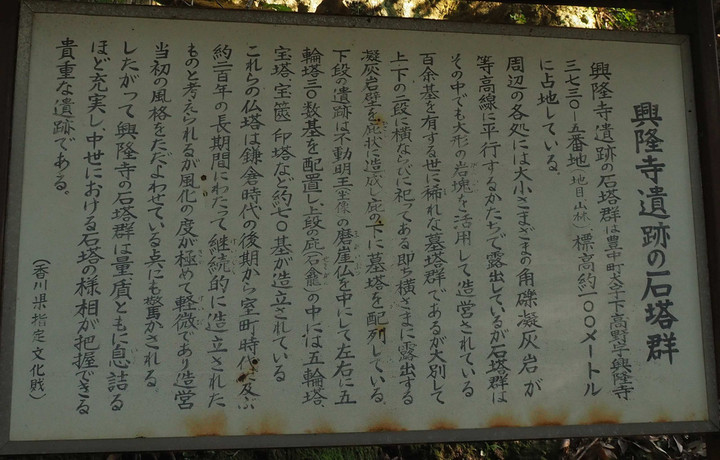 興隆寺遺跡の石塔群
興隆寺遺跡の石塔群は豊中町大字下高野字興隆寺
三七三〇ー五番地(地目山林)標高約一〇〇メートル
に占地している。
周辺の各処には大小さまざまの角礫凝灰岩が
等高線に平行するかたちで露出しているが石塔群は
その中でも大形の岩塊を活用して造営されている
百余基を有する世に稀れな墓塔群であるが大別して
上下の二段に横ならびに祀ってある即ち横さまに露出する
凝灰岩壁を庇状に造成し庇の下に墓塔を配列している。
下段の遺跡は不動明王(坐像)の磨崖仏を中にして左右に五
輪塔三〇数基を配置し、上段の庇(石龕)の中には五輪塔、
宝塔、宝篋印塔など約七〇基が造立されている
これらの仏塔は鎌倉時代の後期から室町時代に及ぶ
約二百年の長期間にわたって継続的に造立された
ものと考えられるが風化の度が極めて軽微であり造営
当初の風格をただよわせている点にも驚かされる
したがって興隆寺の石塔群は量、質ともに息詰る
ほど充実し、中世における石塔の様相が把握できる
貴重な遺跡である。
(香川県指定文化財)